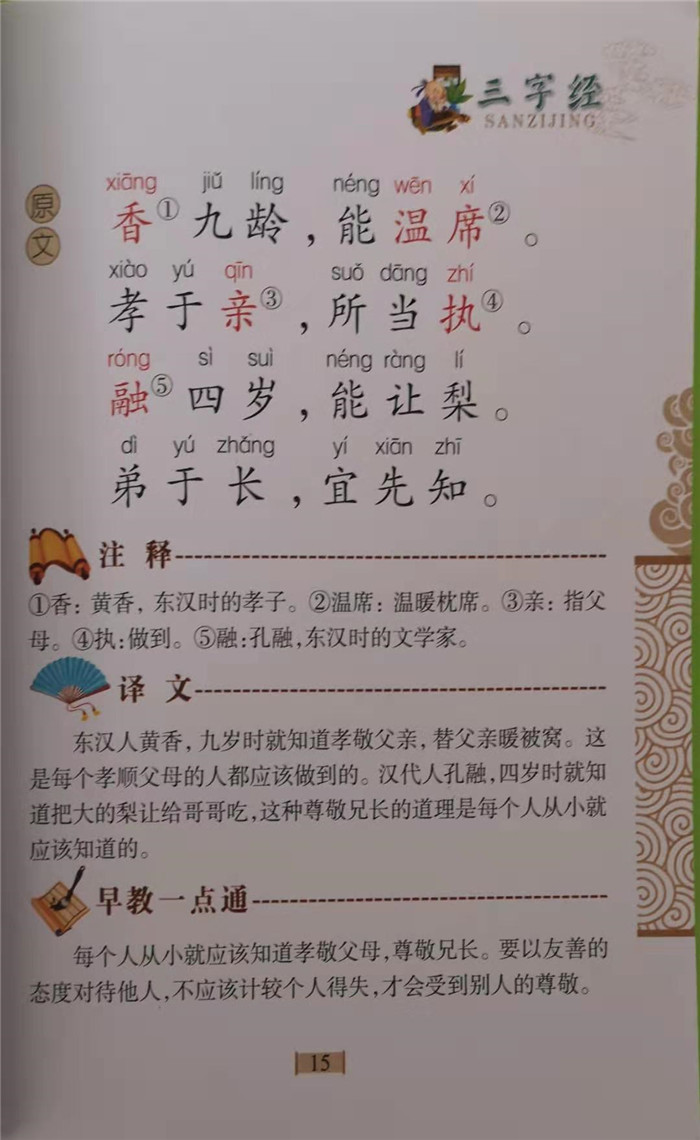 三字经
SANZIJING
原文
xiāng jiǔ líng néng wēn xí
香①九龄，能温席②。
xiào yú qīn suǒ dāng zhí
孝于亲③，所当执④。
róng sì suì néng ràng lí
融⑤四岁，能让梨。
dì yú zhǎng yí xiān zhī
弟于长，宜先知。
注释
①香：黄香，东汉时的孝子。②温席：温暖枕席。③亲：指父
母。④执：做到。⑤融：孔融，东汉时的文学家。
译文
东汉人黄香，九岁时就知道孝敬父亲，替父亲暖被窝。这
是每个孝顺父母的人都应该做到的。汉代人孔融，四岁时就知
道把大的梨让给哥哥吃，这种尊敬兄长的道理是每个人从小就
应该知道的。
早教一点通
每个人从小就应该知道孝敬父母，尊敬兄长。要以友善的
态度对待他人，不应该计较个人得失，才会受到别人的尊敬。
15